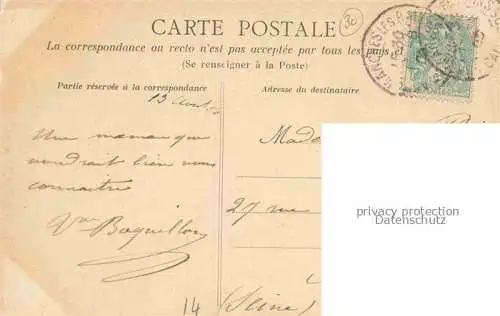 CARTE POSTALE
30
La correspondance au recto n'est pas acceptée par tous les pays
(Se renseigner à la Poste)
Partie réservée à la correspondance
Adresse du destinataire
13 Août
Une maman que
voudrait bien vous
connaitre
Vve Boquillon
Made
27 rue
(Seine)
14
privacy protection
Datenschutz